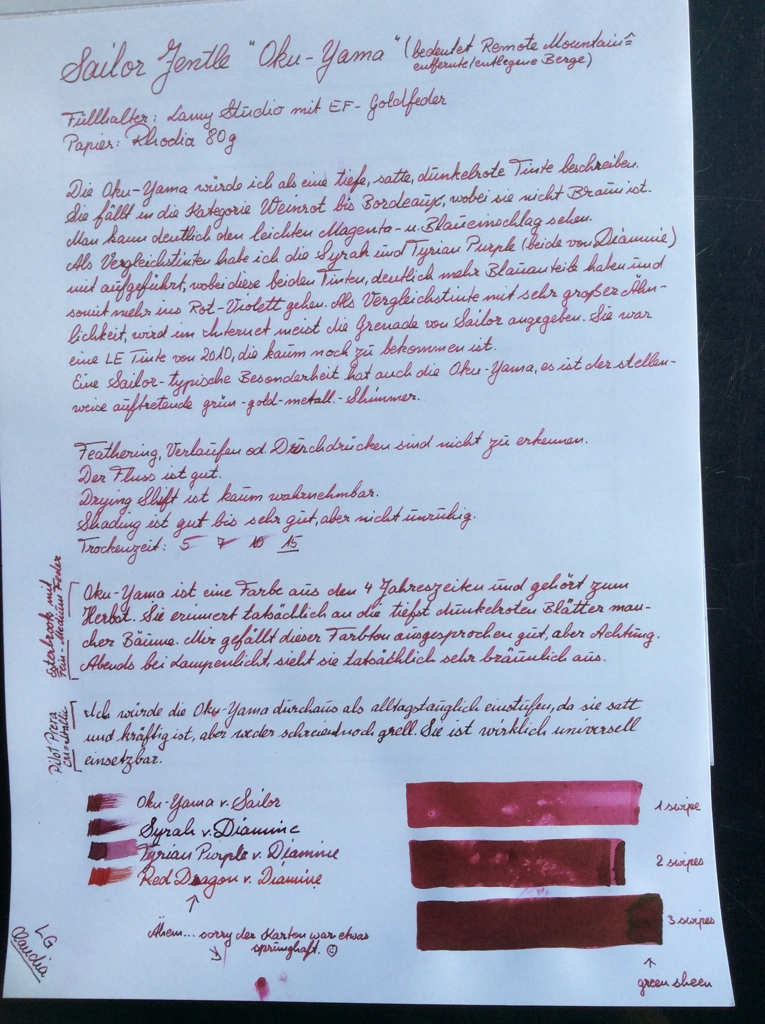 Sailor Jentle "Oku-Yama" (bedeutet Remote Mountain ≙
entfernte/entlegene Berge)
Füllhalter: Lamy Studio mit EF-Goldfeder
Papier: Rhodia 80g
Die Oku-Yama würde ich als eine tiefe, satte, dunkelrote Tinte beschreiben.
Sie fällt in die Kategorie Weinrot bis Bordeaux, wobei sie nicht Braun ist.
Man kann deutlich den leichten Magenta- u. Blaueinschlag sehen.
Als Vergleichstinten habe ich die Syrah und Tyrian Purple (beide von Diamine)
mit aufgeführt, wobei diese beiden Tinten, deutlich mehr Blauanteile haben und
somit mehr ins Rot-Violett gehen. Als Vergleichstinte mit sehr großer Ähn-
lichkeit, wird im Internet meist die Grenade von Sailor angegeben. Sie war
eine LE Tinte von 2010, die kaum noch zu bekommen ist.
Eine Sailor-typische Besonderheit hat auch die Oku-Yama, es ist der stellen-
weise auftretende grün-gold-metall.-Shimmer.
Feathering, Verlaufen od. Durchdrücken sind nicht zu erkennen.
Der Fluss ist gut.
Drying Shift ist kaum wahrnehmbar.
Shading ist gut bis sehr gut, aber nicht unruhig.
Trockenzeit: 5 7 10 15
Esterbrook mit
Fein-Medium Feder
Oku-Yama ist eine Farbe aus den 4 Jahreszeiten und gehört zum
Herbst. Sie erinnert tatsächlich an die tiefst dunkelroten Blätter man-
cher Bäume. Mir gefällt dieser Farbton ausgesprochen gut, aber Achtung.
Abends bei Lampenlicht, sieht sie tatsächlich sehr bräunlich aus.
Pilot Prera
Ich würde die Oku-Yama durchaus als alltagstauglich einstufen, da sie satt
und kräftig ist, aber weder schreiend noch grell. Sie ist wirklich universell
einsetzbar.
Oku-Yama v. Sailor
Syrah v. Diamine
Tyrian Purple v. Diamine
Red Dragon v. Diamine
↑
Ähem... sorry der Karton war etwas
sprunghaft. ☺
1 swipe
2 swipes
3 swipes
↑
green sheen
LG
Claudia